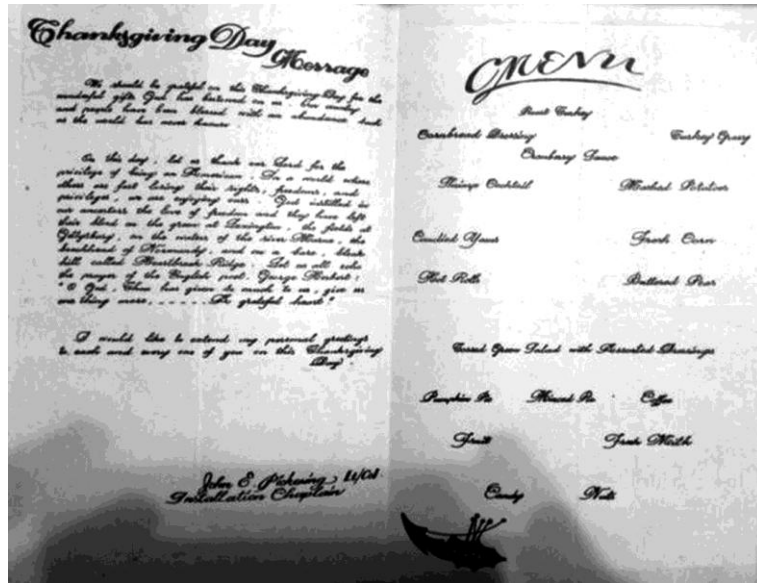 Thanksgiving Day
Message
We should be grateful on this Thanksgiving Day for the
wonderful gifts God has bestowed on us. Our country
and people have been blessed with an abundance such
as the world has never known.
On this day, let us thank our Lord for the
privilege of being an American. In a world where
others are fast losing their rights, freedoms, and
privileges, we are enjoying ours. God instilled in
our ancestors the love of freedom and they have left
their blood on the green at Lexington, the fields at
Gettysburg, on the waters of the river Marne, the
beachhead of Normandy, and on a bare, bleak
hill called Heartbreak Ridge. Let us all echo
the prayer of the English poet, George Herbert:
"O God, Thou has given so much to us, give us
one thing more, ...... The grateful heart"
I would like to extend my personal greetings
to each and every one of you on this Thanksgiving
Day.
John E. Pickering Lt/Col.
Installation Chaplain
MENU
Roast Turkey
Cornbread Dressing Turkey Gravy
Cranberry Sauce
Shrimp Cocktail Mashed Potatoes
Candied Yams Fresh Corn
Hot Rolls Buttered Peas
Tossed Green Salad with Assorted Dressings
Pumpkin Pie Minced Pie Coffee
Fruit Fresh Milk
Candy Nuts